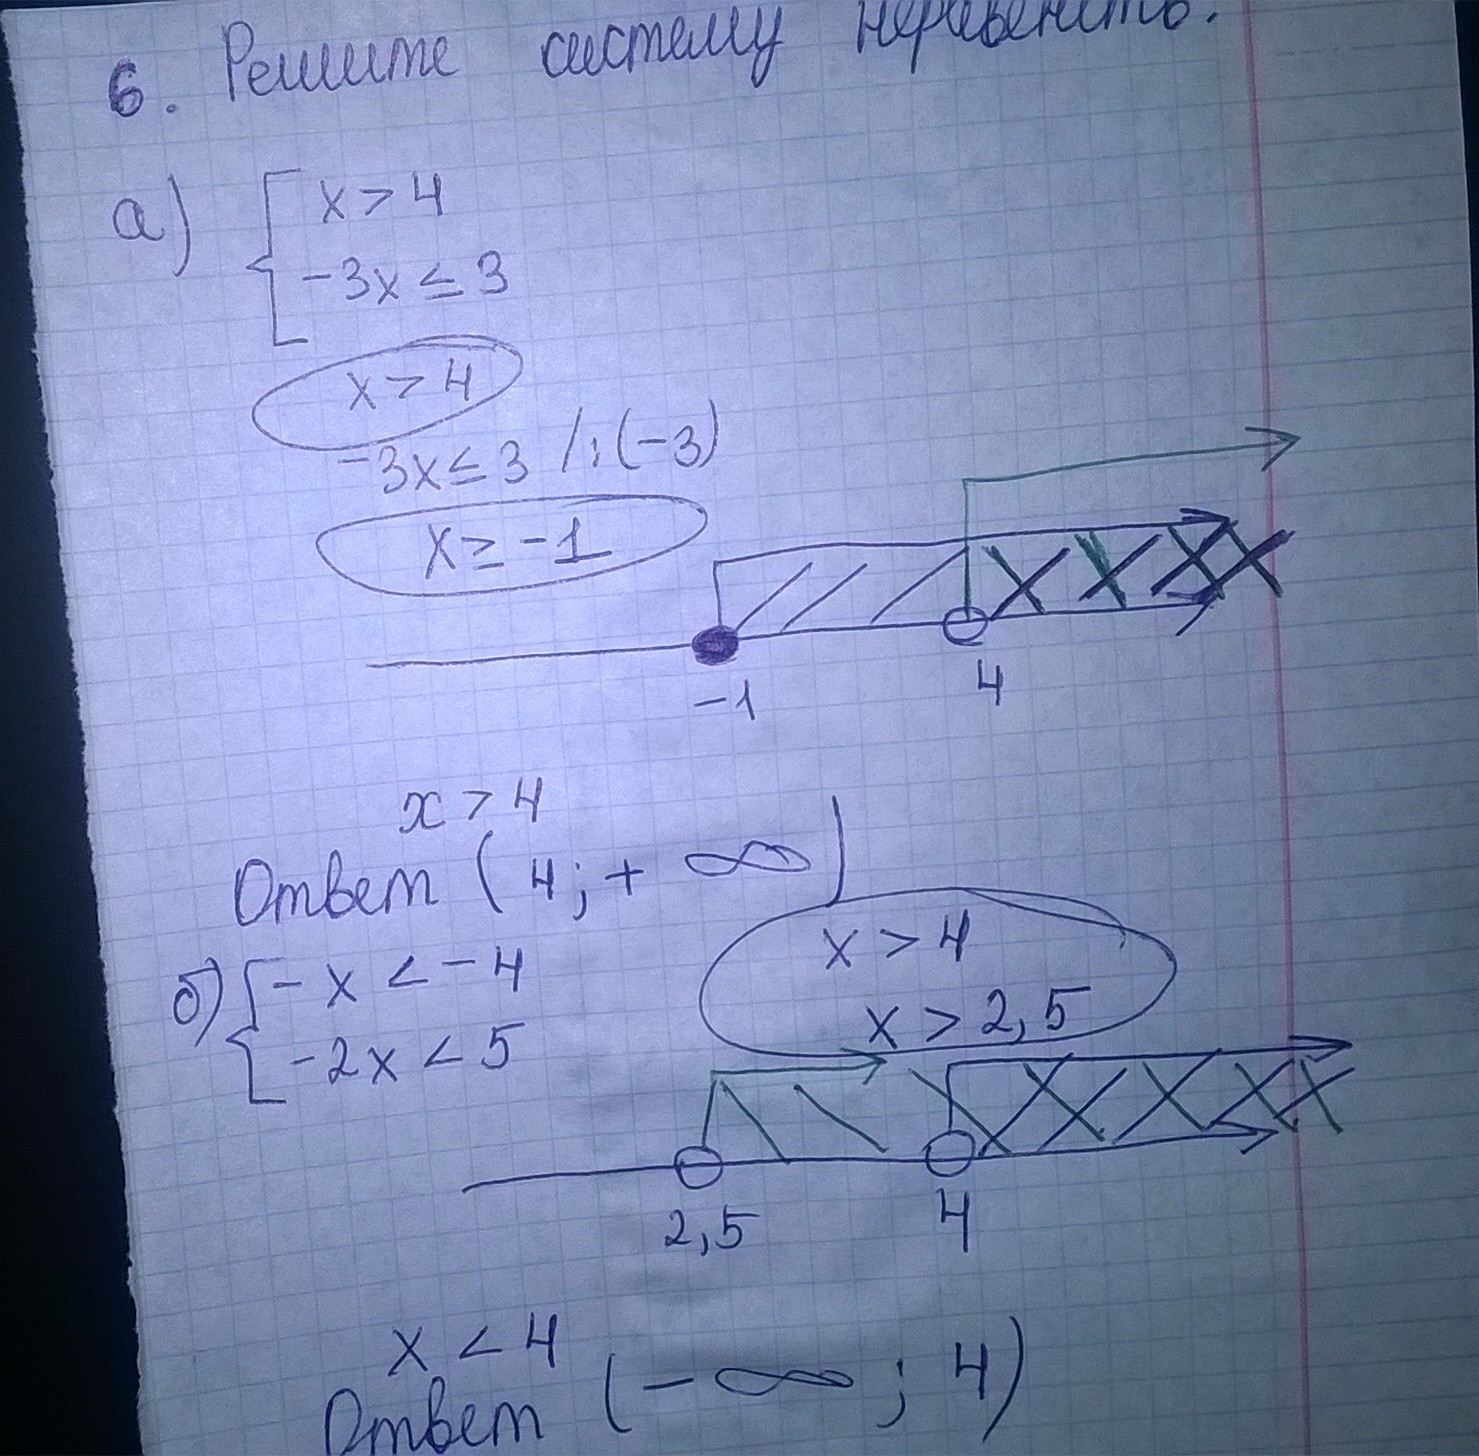 6. Решите систему неравенств.
а) { x > 4
-3x ≤ 3
x > 4
-3x ≤ 3 /:(-3)
x ≥ -1
-1 4
x > 4
Ответ (4; + ∞)
б) { -x < -4
-2x < 5
x > 4
x > 2,5
2,5 4
x < 4
Ответ (-∞; 4)